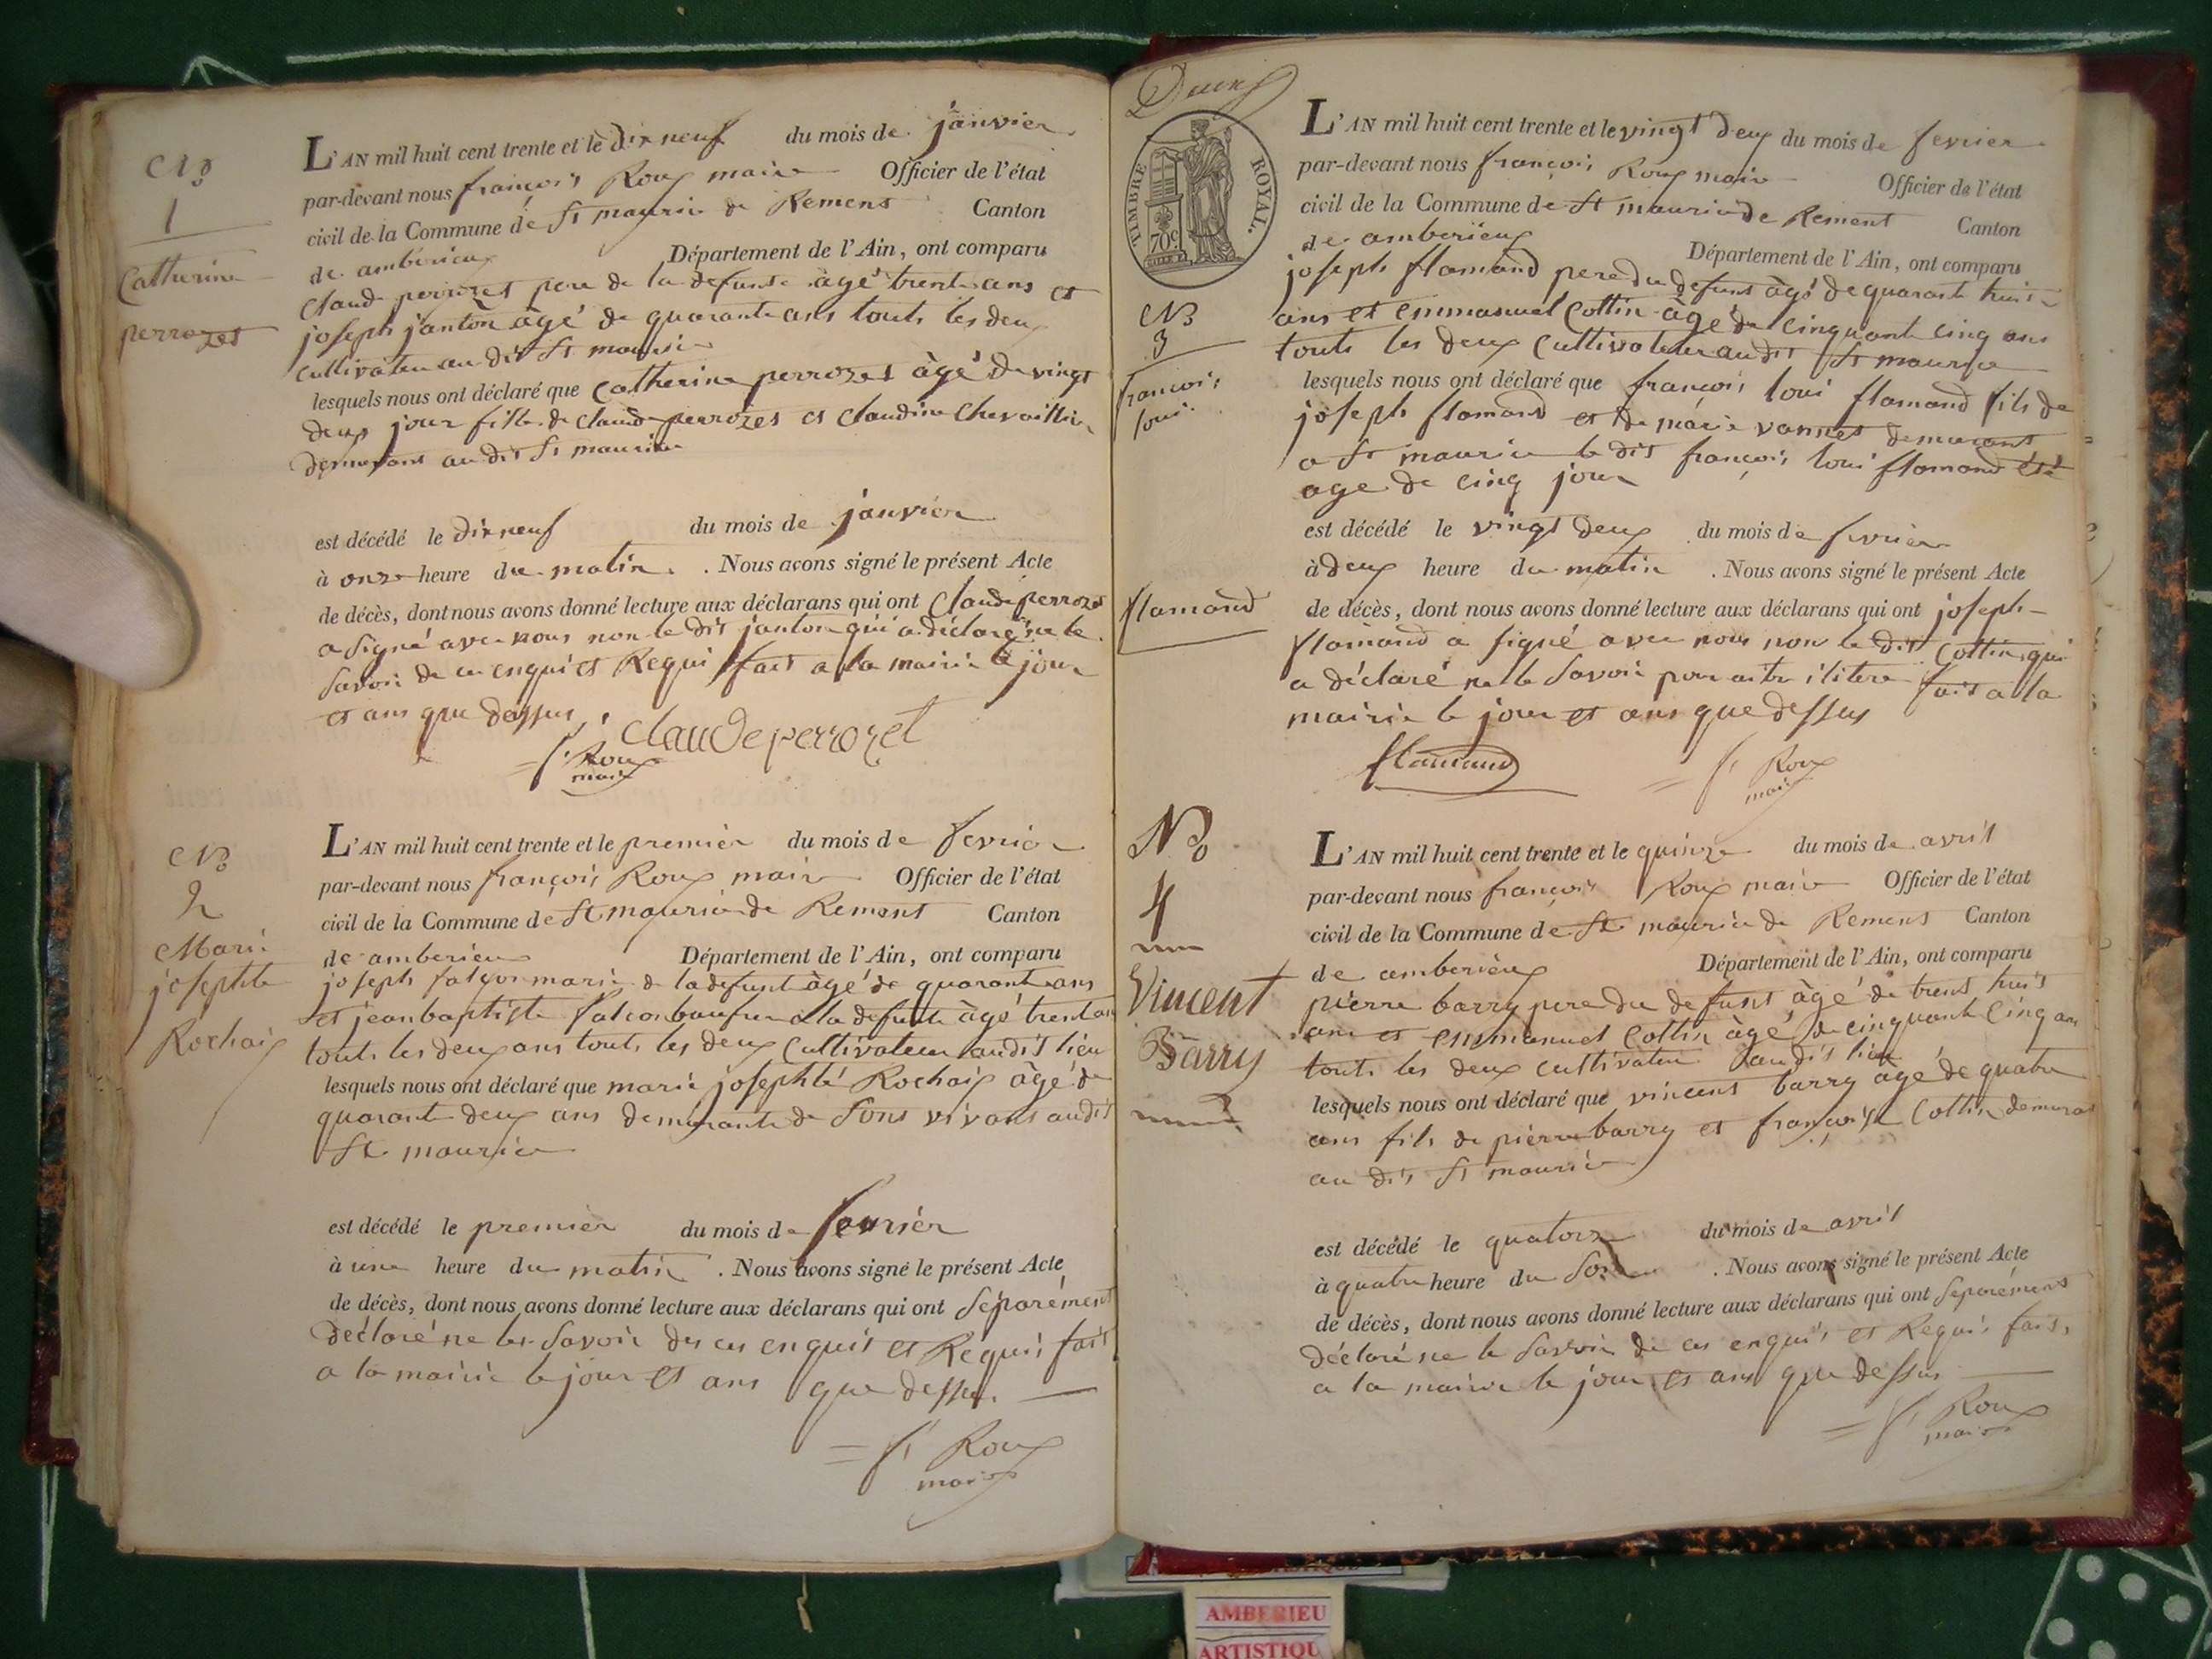 No
1
Catherine
perrozet
L'AN mil huit cent trente et le dix neuf du mois de janvier
par-devant nous françois Roux maire Officier de l'état
civil de la Commune de St mauricè de Remens Canton
de amberieux Département de l'Ain, ont comparu
Claude perrozet pere de la defunte âgé trente ans et
joseph janton âgé de quarante ans touts les deux
cultivateu au dit St mauricè
lesquels nous ont déclaré que Catherine perrozet âgé de vingt
deux jour fille de claude perrozet et claudine Chevaillier
demeurant au dit St mauricè
est décédé le dix neuf du mois de janvier
à onze heure du matin. . Nous avons signé le présent Acte
de décès, dont nous avons donné lecture aux déclarans qui ont Claude perrozet
a signé avec nous non le dit janton qui a déclaré ne le
savoir de ce enquit et Requi fait a la mairie le jour
et ans que dessus.
claude perrozet
f. Roux
maire
No
2
Marie
josephte
Rochaix
L'AN mil huit cent trente et le premier du mois de fevrier
par-devant nous françois Roux maire Officier de l'état
civil de la Commune de St mauricè de Remens Canton
de amberieu Département de l'Ain, ont comparu
joseph falcon mari de la defunte âgé de quarante ans
et jean baptiste falcon baufrere de la defunte âgé trente ans
touts les deux ans touts les deux Cultivateur au dit lieu
lesquels nous ont déclaré que marie josephté Rochaix âgé de
quarante deux ans demeurante de sons vivant au dit
St mauricè
est décédé le premier du mois de fevrier
à une heure du matin . Nous avons signé le présent Acte
de décès, dont nous avons donné lecture aux déclarans qui ont séparément
déclaré ne les savoir de ces enquit et Requis fait
a la mairie le jour et ans que dessus.
f. Roux
maire
TIMBRE ROYAL.
70c
No
3
françois
loui
flamand
L'AN mil huit cent trente et le vingt deux du mois de fevrier
par-devant nous françois Roux maire Officier de l'état
civil de la Commune de St mauricè de Remens Canton
de amberieux Département de l'Ain, ont comparu
joseph flamand pere du defunt âgé de quarante huit
ans et emmanuel Cottin âgé de cinquante cinq ans
touts les deux Cultivateur au dit St mauricè
lesquels nous ont déclaré que françois loui flamand fils de
joseph flamand et de marie vannet demeurant
a St mauricè le dit françois loui flamand été
age de cinq jour
est décédé le vingt deux du mois de fevrier
à deux heure du matin . Nous avons signé le présent Acte
de décès, dont nous avons donné lecture aux déclarans qui ont joseph
flamand a signé avec nous non le dit Cottin qui
a déclaré ne le savoir pour aitre ilitere fait a la
mairie le jour et ans que dessus
flamand
f. Roux
maire
No
4
Vincent
Barry
L'AN mil huit cent trente et le quinze du mois de avril
par-devant nous françois Roux maire Officier de l'état
civil de la Commune de St mauricè de Remens Canton
de amberieux Département de l'Ain, ont comparu
pierre barry pere du defunt âgé de trent huit
ans et emmanuel Cottin âgé de cinquante cinq ans
touts les deux cultivateur au dit lieu
lesquels nous ont déclaré que vincent barry âgé de quatre
ans fils de pierre barry et françoise Cottin demurant
au dit St mauricè
est décédé le quatorze du mois de avril
à quatre heure du soir . Nous avons signé le présent Acte
de décès, dont nous avons donné lecture aux déclarans qui ont séparément
déclaré ne le savoir de ces enquis et Requis fait,
a la mairie le jour et ans que dessus
f. Roux
maire
AMBERIEU
ARTISTIQU